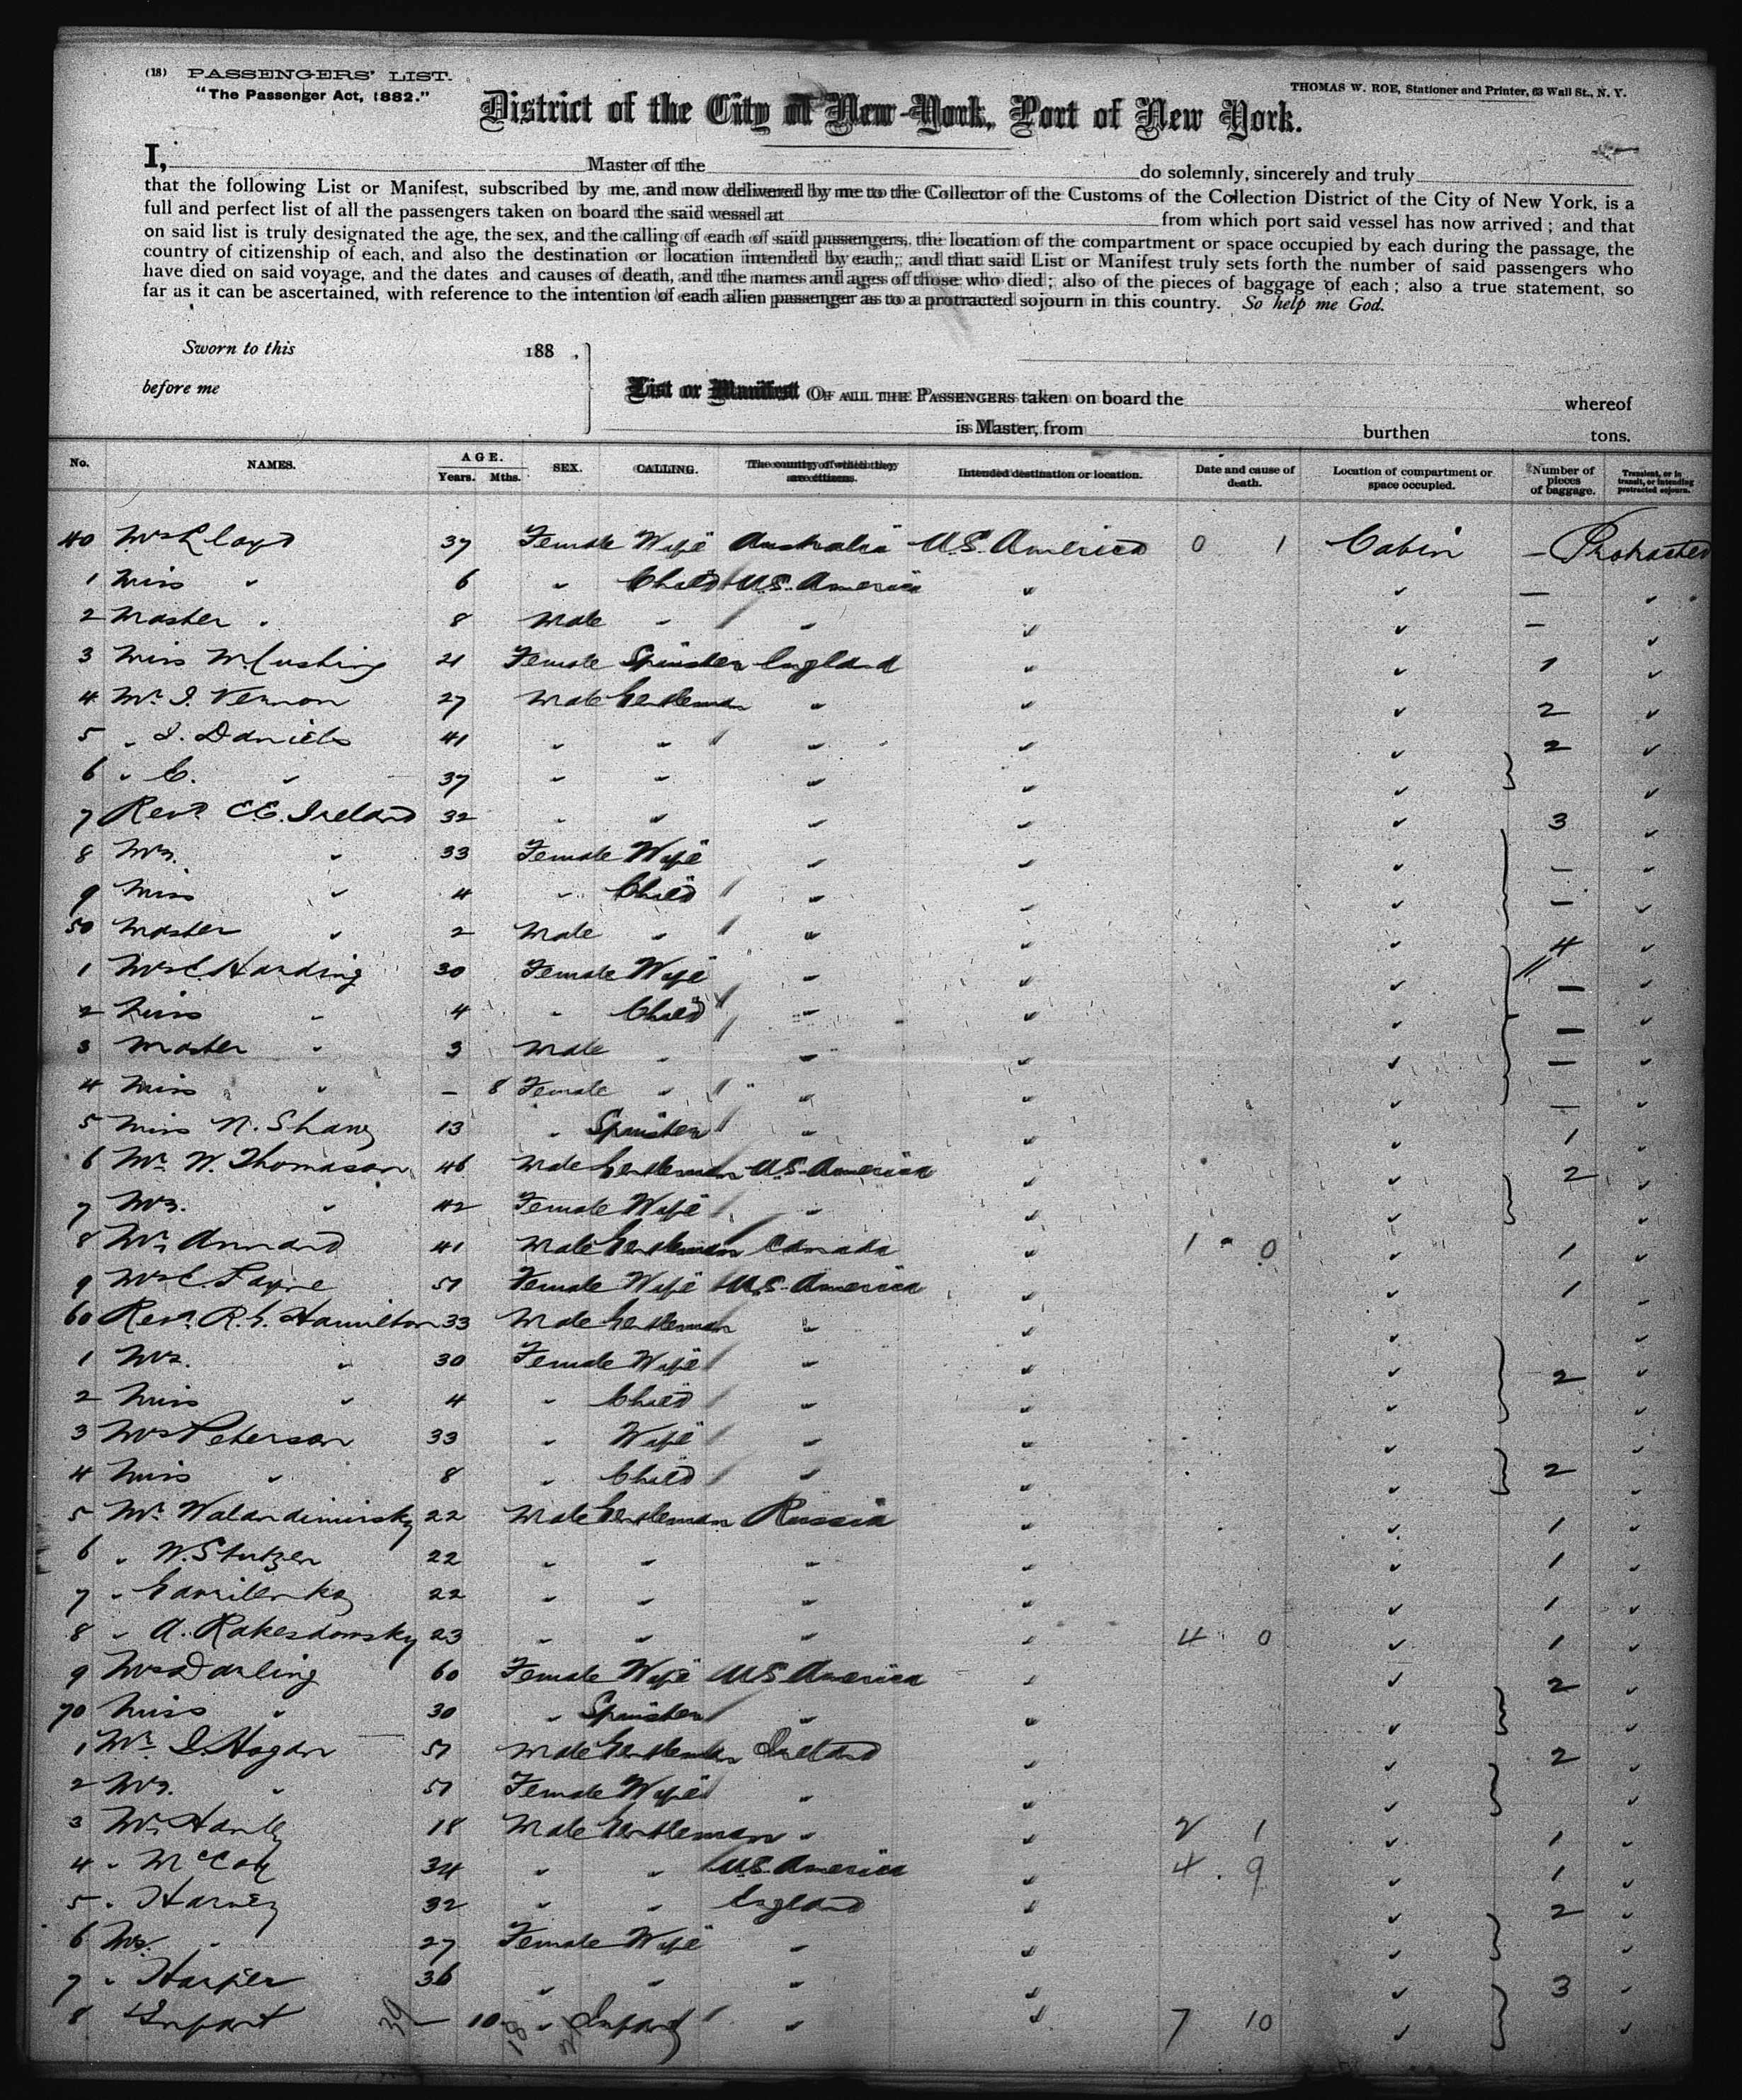 (18) PASSENGERS' LIST.
"The Passenger Act, 1882."
THOMAS W. ROE, Stationer and Printer, 63 Wall St., N. Y.
District of the City of New-York, Port of New York.
I, Master of the do solemnly, sincerely and truly
that the following List or Manifest, subscribed by me, and now delivered by me to the Collector of the Customs of the Collection District of the City of New York, is a
full and perfect list of all the passengers taken on board the said vessel at from which port said vessel has now arrived; and that
on said list is truly designated the age, the sex, and the calling of each of said passengers, the location of the compartment or space occupied by each during the passage, the
country of citizenship of each, and also the destination or location intended by each; and that said List or Manifest truly sets forth the number of said passengers who
have died on said voyage, and the dates and causes of death, and the names and ages of those who died; also of the pieces of baggage of each; also a true statement, so
far as it can be ascertained, with reference to the intention of each alien passenger as to a protracted sojourn in this country. So help me God.
Sworn to this 188 .
before me
List or Manifest OF ALL THE PASSENGERS taken on board the whereof
is Master, from burthen tons.
No. NAMES. AGE. Years. Mths. SEX. CALLING. The country of which they are citizens. Intended destination or location. Date and cause of death. Location of compartment or space occupied. Number of pieces of baggage. Transient, or in transit, or intending protracted sojourn.
40 Mrs Lloyd 37 Female Wife Australia U.S. America 0 1 Cabin — Protracted
1 Miss " 6 " Child U.S. America " " — "
2 Master " 8 Male " " " " — "
3 Miss M. Cushing 21 Female Spinster England " " 1 "
4 Mr. I. Vernon 27 Male Gentleman " " " 2 "
5 " I. Daniels 41 " " " " " 2 "
6 " C. " 37 " " " " " "
7 Revd C.E. Ireland 32 " " " " " 3 "
8 Mrs. " 33 Female Wife " " " — "
9 Miss " 4 " Child " " " — "
50 Master " 2 Male " " " " 4 "
1 Mrs C. Harding 30 Female Wife " " " — "
2 Miss " 4 " Child " " " — "
3 Master " 3 Male " " " " — "
4 Miss " — 8 Female " " " " — "
5 Miss N. Shaw 13 " Spinster " " " 1 "
6 Mr. W. Thomason 46 Male Gentleman U.S. America " " 2 "
7 Mrs. " 42 Female Wife " " " "
8 Mr. Annand 41 Male Gentleman Canada " 1 - 0 " 1 "
9 Mrs C. Payne 51 Female Wife U.S. America " " 1 "
60 Revd. R.G. Hamilton 33 Male Gentleman " " " "
1 Mrs. " 30 Female Wife " " " 2 "
2 Miss " 4 " Child " " " "
3 Mrs Peterson 33 " Wife " " " "
4 Miss " 8 " Child " " " 2 "
5 Mr. Walardimirsky 22 Male Gentleman Russia " " 1 "
6 " W. Stutzer 22 " " " " " 1 "
7 " 22 " " " " " 1 "
8 " A. Rakesdowsky 23 " " " " 4 0 " 1 "
9 Mrs Darling 60 Female Wife U.S. America " " 2 "
70 Miss " 30 " Spinster " " " "
1 Mr. I. Hogan 51 Male Gentleman Ireland " " 2 "
2 Mrs. " 51 Female Wife " " " "
3 Mr. Hanly 18 Male Gentleman " " 2 1 " 1 "
4 " McCoy 34 " " U.S. America " 4 . 9 " 1 "
5 " Harvey 32 " " England " " 2 "
6 Mrs. " 27 Female Wife " " " "
7 " Harper 36 " " " " " 3 "
8 & Infant 39 — 10 18 21 " Infant " " 7 10 " "